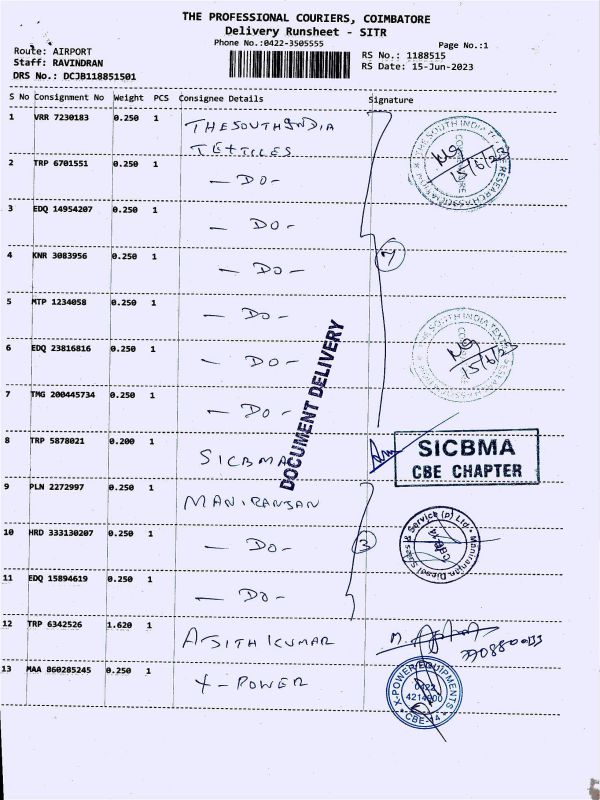 THE PROFESSIONAL COURIERS, COIMBATORE
Delivery Runsheet - SITR
Phone No.:0422-3505555
Page No.:1
Route: AIRPORT
RS No.: 1188515
Staff: RAVINDRAN
RS Date: 15-Jun-2023
DRS No.: DCJB118851501
S No Consignment No Weight PCS Consignee Details Signature
1 VRR 7230183 0.250 1 THE SOUTH INDIA
TEXTILES
2 TRP 6701551 0.250 1 - DO -
3 EDQ 14954207 0.250 1 - DO -
4 KNR 3083956 0.250 1 - DO -
7
5 MTP 1234058 0.250 1 - DO -
6 EDQ 23816816 0.250 1 - DO -
7 TMG 200445734 0.250 1 - DO -
DOCUMENT DELIVERY
8 TRP 5878021 0.200 1 SICBMA
SICBMA
CBE CHAPTER
9 PLN 2272997 0.250 1 MANIRANJAN
10 HRD 333130207 0.250 1 - DO -
3
11 EDQ 15894619 0.250 1 - DO -
12 TRP 6342526 1.620 1 AJITH KUMAR
13 MAA 860285245 0.250 1 X - POWER
THE SOUTH INDIA TEXTILE RESEARCH ASSOCIATION
COIMBATORE
15/6/23
15/6/23
Maniranjan Diesel Sales & Service (P) Ltd
CBE-14
X-POWER EQUIPMENTS
0422
CBE-14